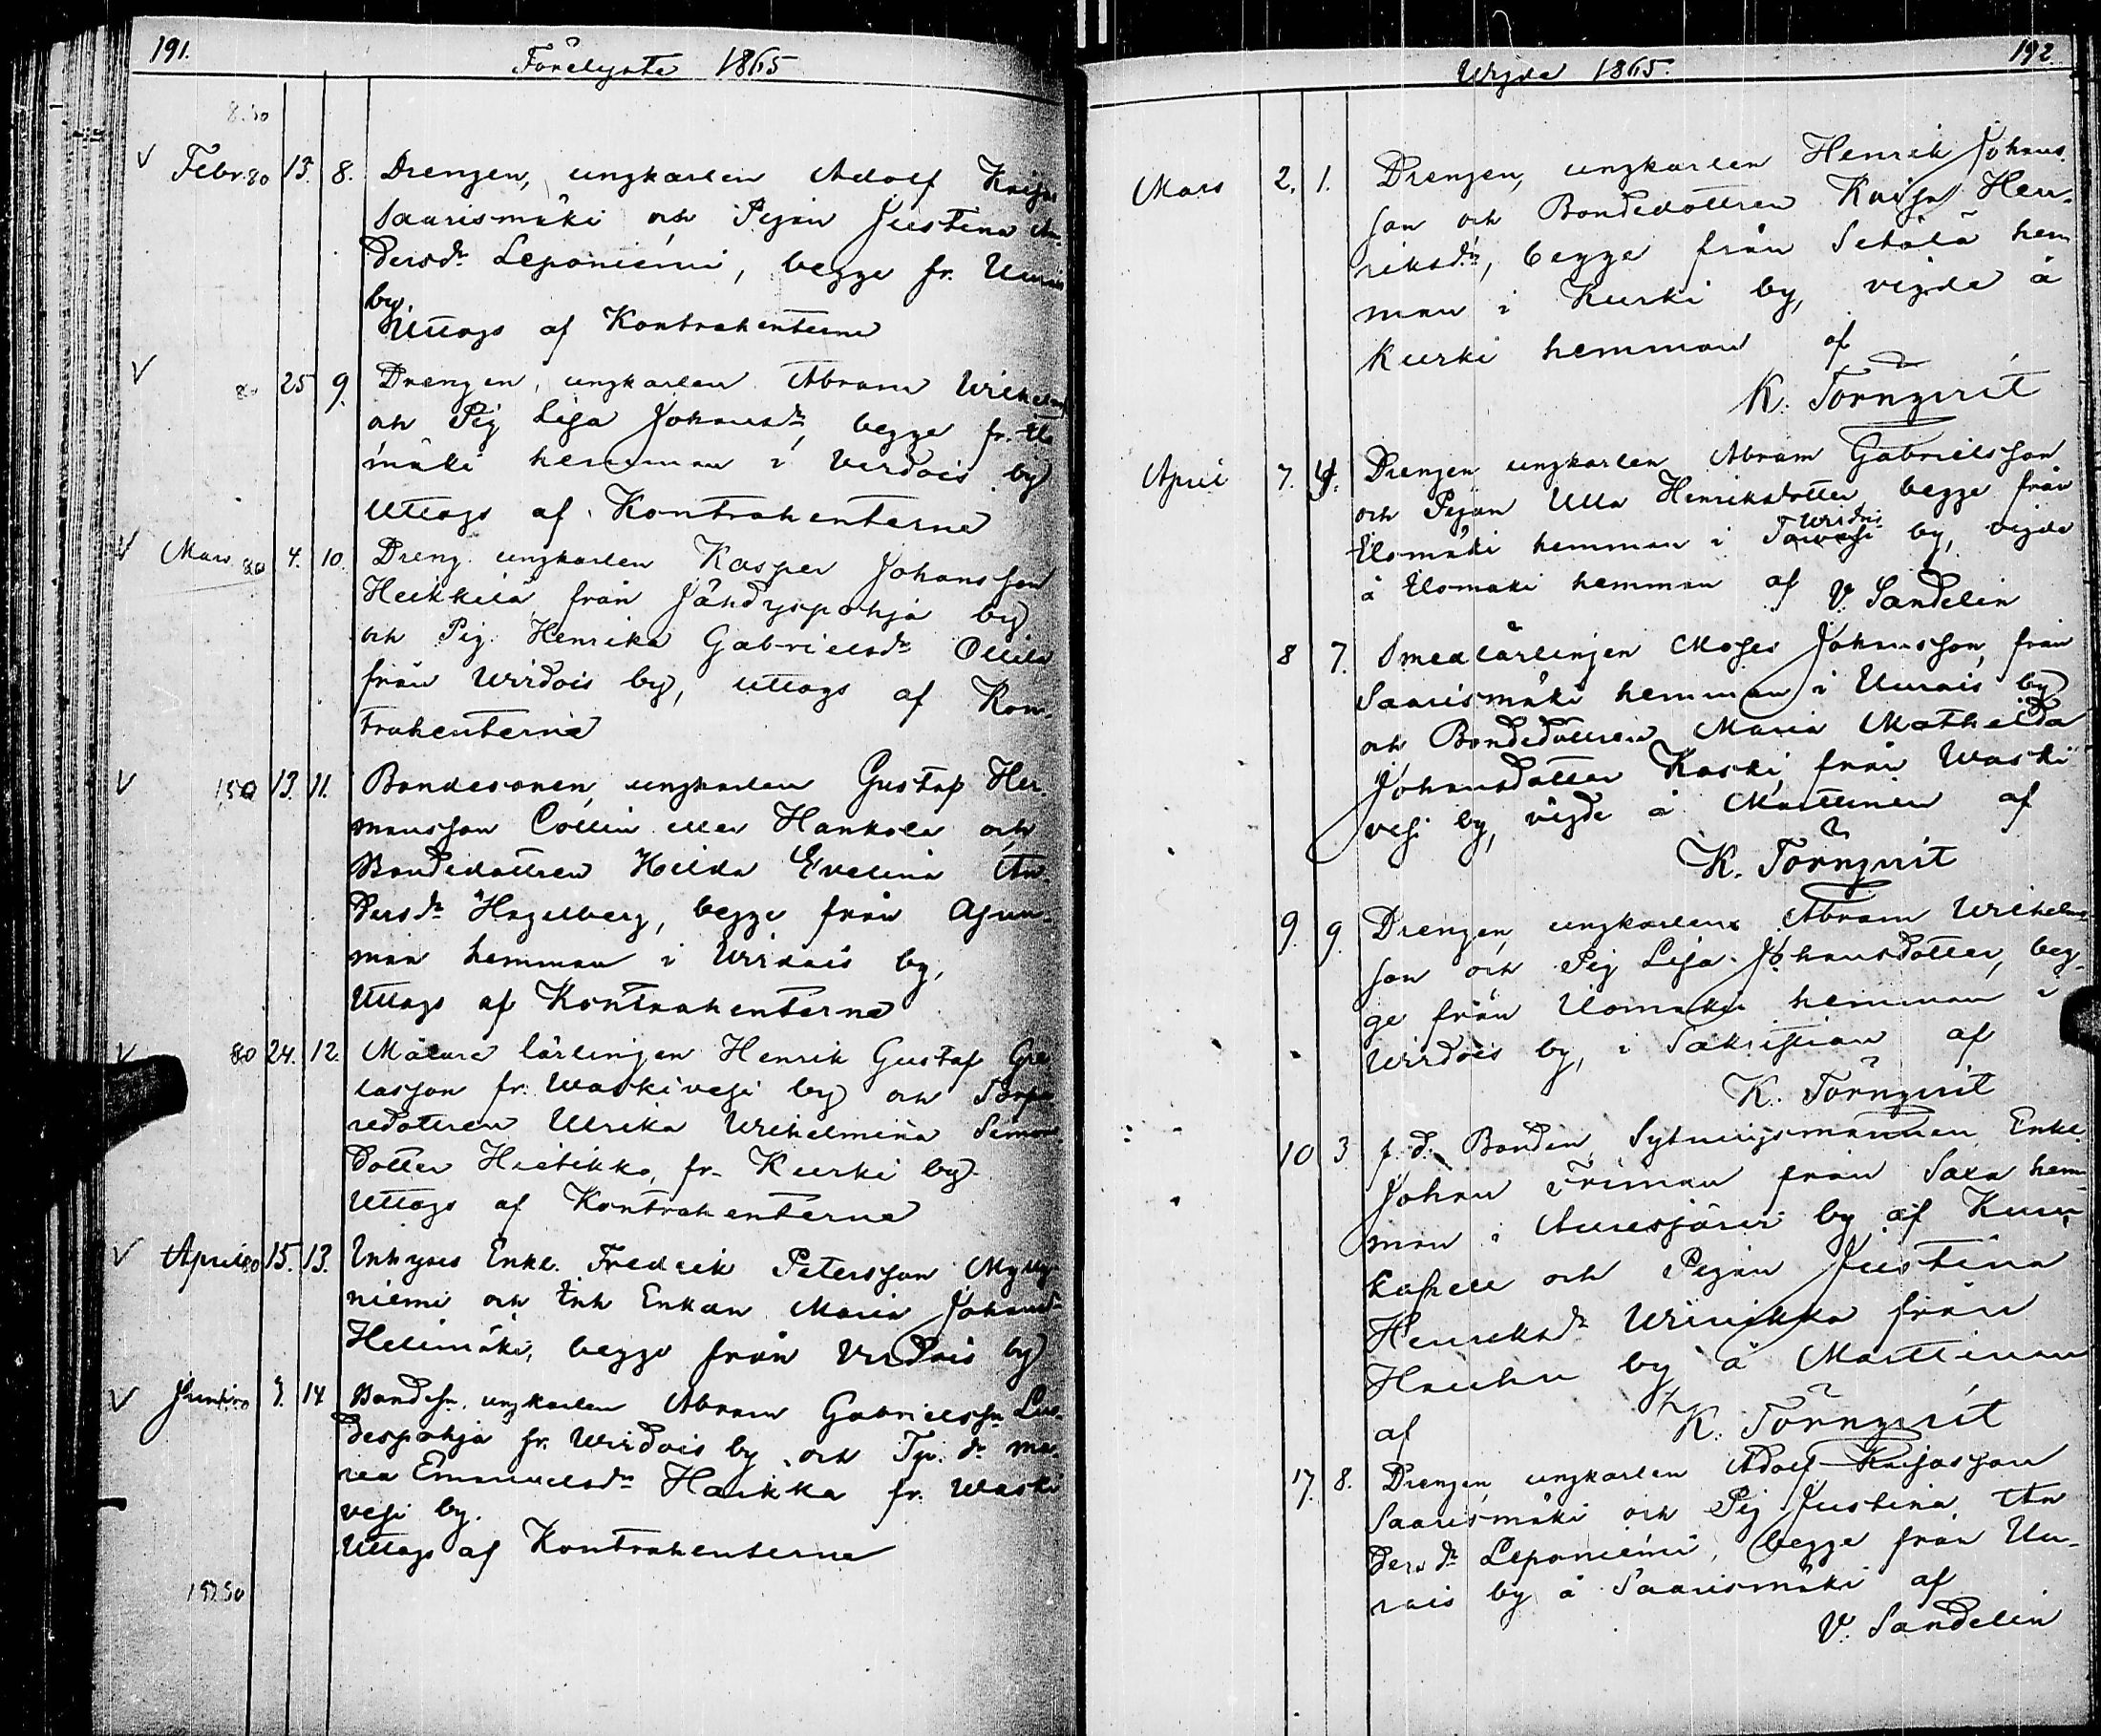 191.
Förelyste 1865
8.50
Febr. 80 15. 8. Drengen, ungkarlen Adolf Kaijas
Saarismäki och Pigan Justina An-
dersdr Leponiemi, begge fr. Uurais
by.
Uttogs af Kontrahenterne
80 25 9. Drengen, ungkarlen Abram Wilhelms
och Pig Lisa Johansdr, begge fr. Elo
mäki hemman i Virdois by
Uttogs af Kontrahenterne
Mars 80 4. 10. Dreng. ungkarlen Kasper Johansson
Heikkilä från Jähdyspohja by
och Pig. Henrika Gabrielsdr Ollila
från Wirdois by, uttogs af Kon-
trahenterne
150 13. 11. Bondesonen, ungkarlen Gustaf Her-
mansson Collin eller Hankola och
Bondedottren Hilda Evelina An-
dersdr Hagelberg, begge från
män hemman i Wirdois by,
Uttogs af Kontrahenterne
80 24. 12. Målare lärlingen Henrik Gustaf
lasson fr. Waskivesi by och Torpa
redottren Ulrika Wilhelmina Simons
dotter Hietikko, fr. Kurki by
Uttogs af Kontrahenterne
April 80 15. 13. Inhyses Enkl. Fredrik Petersson Mylly
niemi och Inh Enkan Maria Johansdr
Helimäki, begge från Virdois by
Juni 9. 14 Bondesn. ungkarlen Abram Gabrielssn
despohja fr. Wirdois by och Tp. dr Ma-
ria Emanuelsdr Harkka fr. Waski
vesi by.
Uttogs af Kontrahenterne
192
Wigde 1865.
Mars 2. 1. Drengen, ungkarlen Henrik Johans-
son och Bondedottren Kaisa Hen-
riksdr, begge från Setälä hem
man i Kurki by, vigde å
Kurki hemman af
K. Törnqvist
April 7. 4. Drengen ungkarlen Abram Gabrielsson
och Pigan Ulla Henriksdotter begge från
Elomäki hemman i Wirdois by, vigde
å Elomäki hemman af V. Sandelin
8 7. Smedlärlingen Moses Johansson, från
Saarismäki hemman i Uurais by
och Bondedottren Maria Mathilda
Johansdotter Kaski från Waski
vesi by, vigde å Marttinen af
K. Törnqvist
9. 9 Drengen, ungkarlen Abram Wilhelms-
son och Pig Lisa Johansdotter, beg-
ge från Elomäki hemman i
Wirdois by, i Sakristian af
K. Törnqvist
10 3 f. d. Bonden, Sytningsmannen, Enkl.
Johan Friman från Sala hem-
man i Auresjärvi by af Kuru
kapell och Pigan Justina
Henriksdr Wirikka från
Hauhu by å Marttinen
af K. Törnqvist
17. 8. Drengen, ungkarlen Adolf Kaijasson
Saarismäki och Pig Justina An
dersdr Leponiemi, begge från Uu-
rais by å Saarismäki af
V. Sandelin